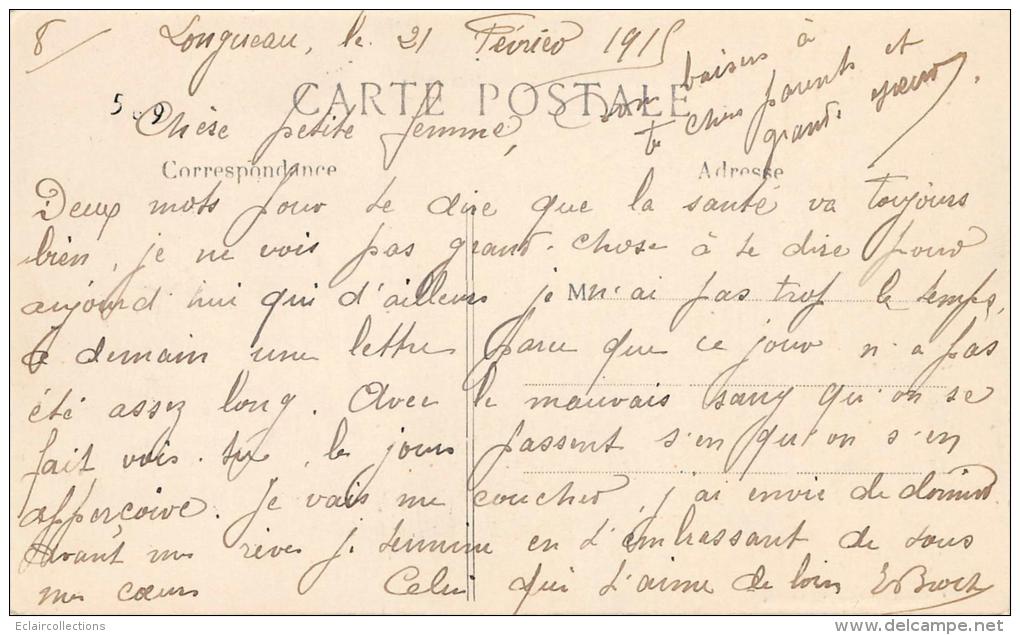 8/ Longueau, le 21 Février 1915
bons baisers à
tes chers parents et
grand-
CARTE POSTALE
Chère petite femme,
Correspondance
Adresse
Deux mots pour te dire que la santé va toujours
bien, je ne vois pas grand-chose à te dire pour
aujourd'hui qui d'ailleurs je n'ai pas trop le temps,
M
à demain une lettre parce que ce jour n'a pas
été assez long. Avec le mauvais sang qu'on se
fait vois-tu, les jours passent s'en qu'on s'en
apperçoive. Je vais me coucher, j'ai envie de dormir
Avant mes rêves je termine en t'embrassant de tous
mes cœurs Celui qui t'aime de loin
Eclaircollections
www.delcampe.net